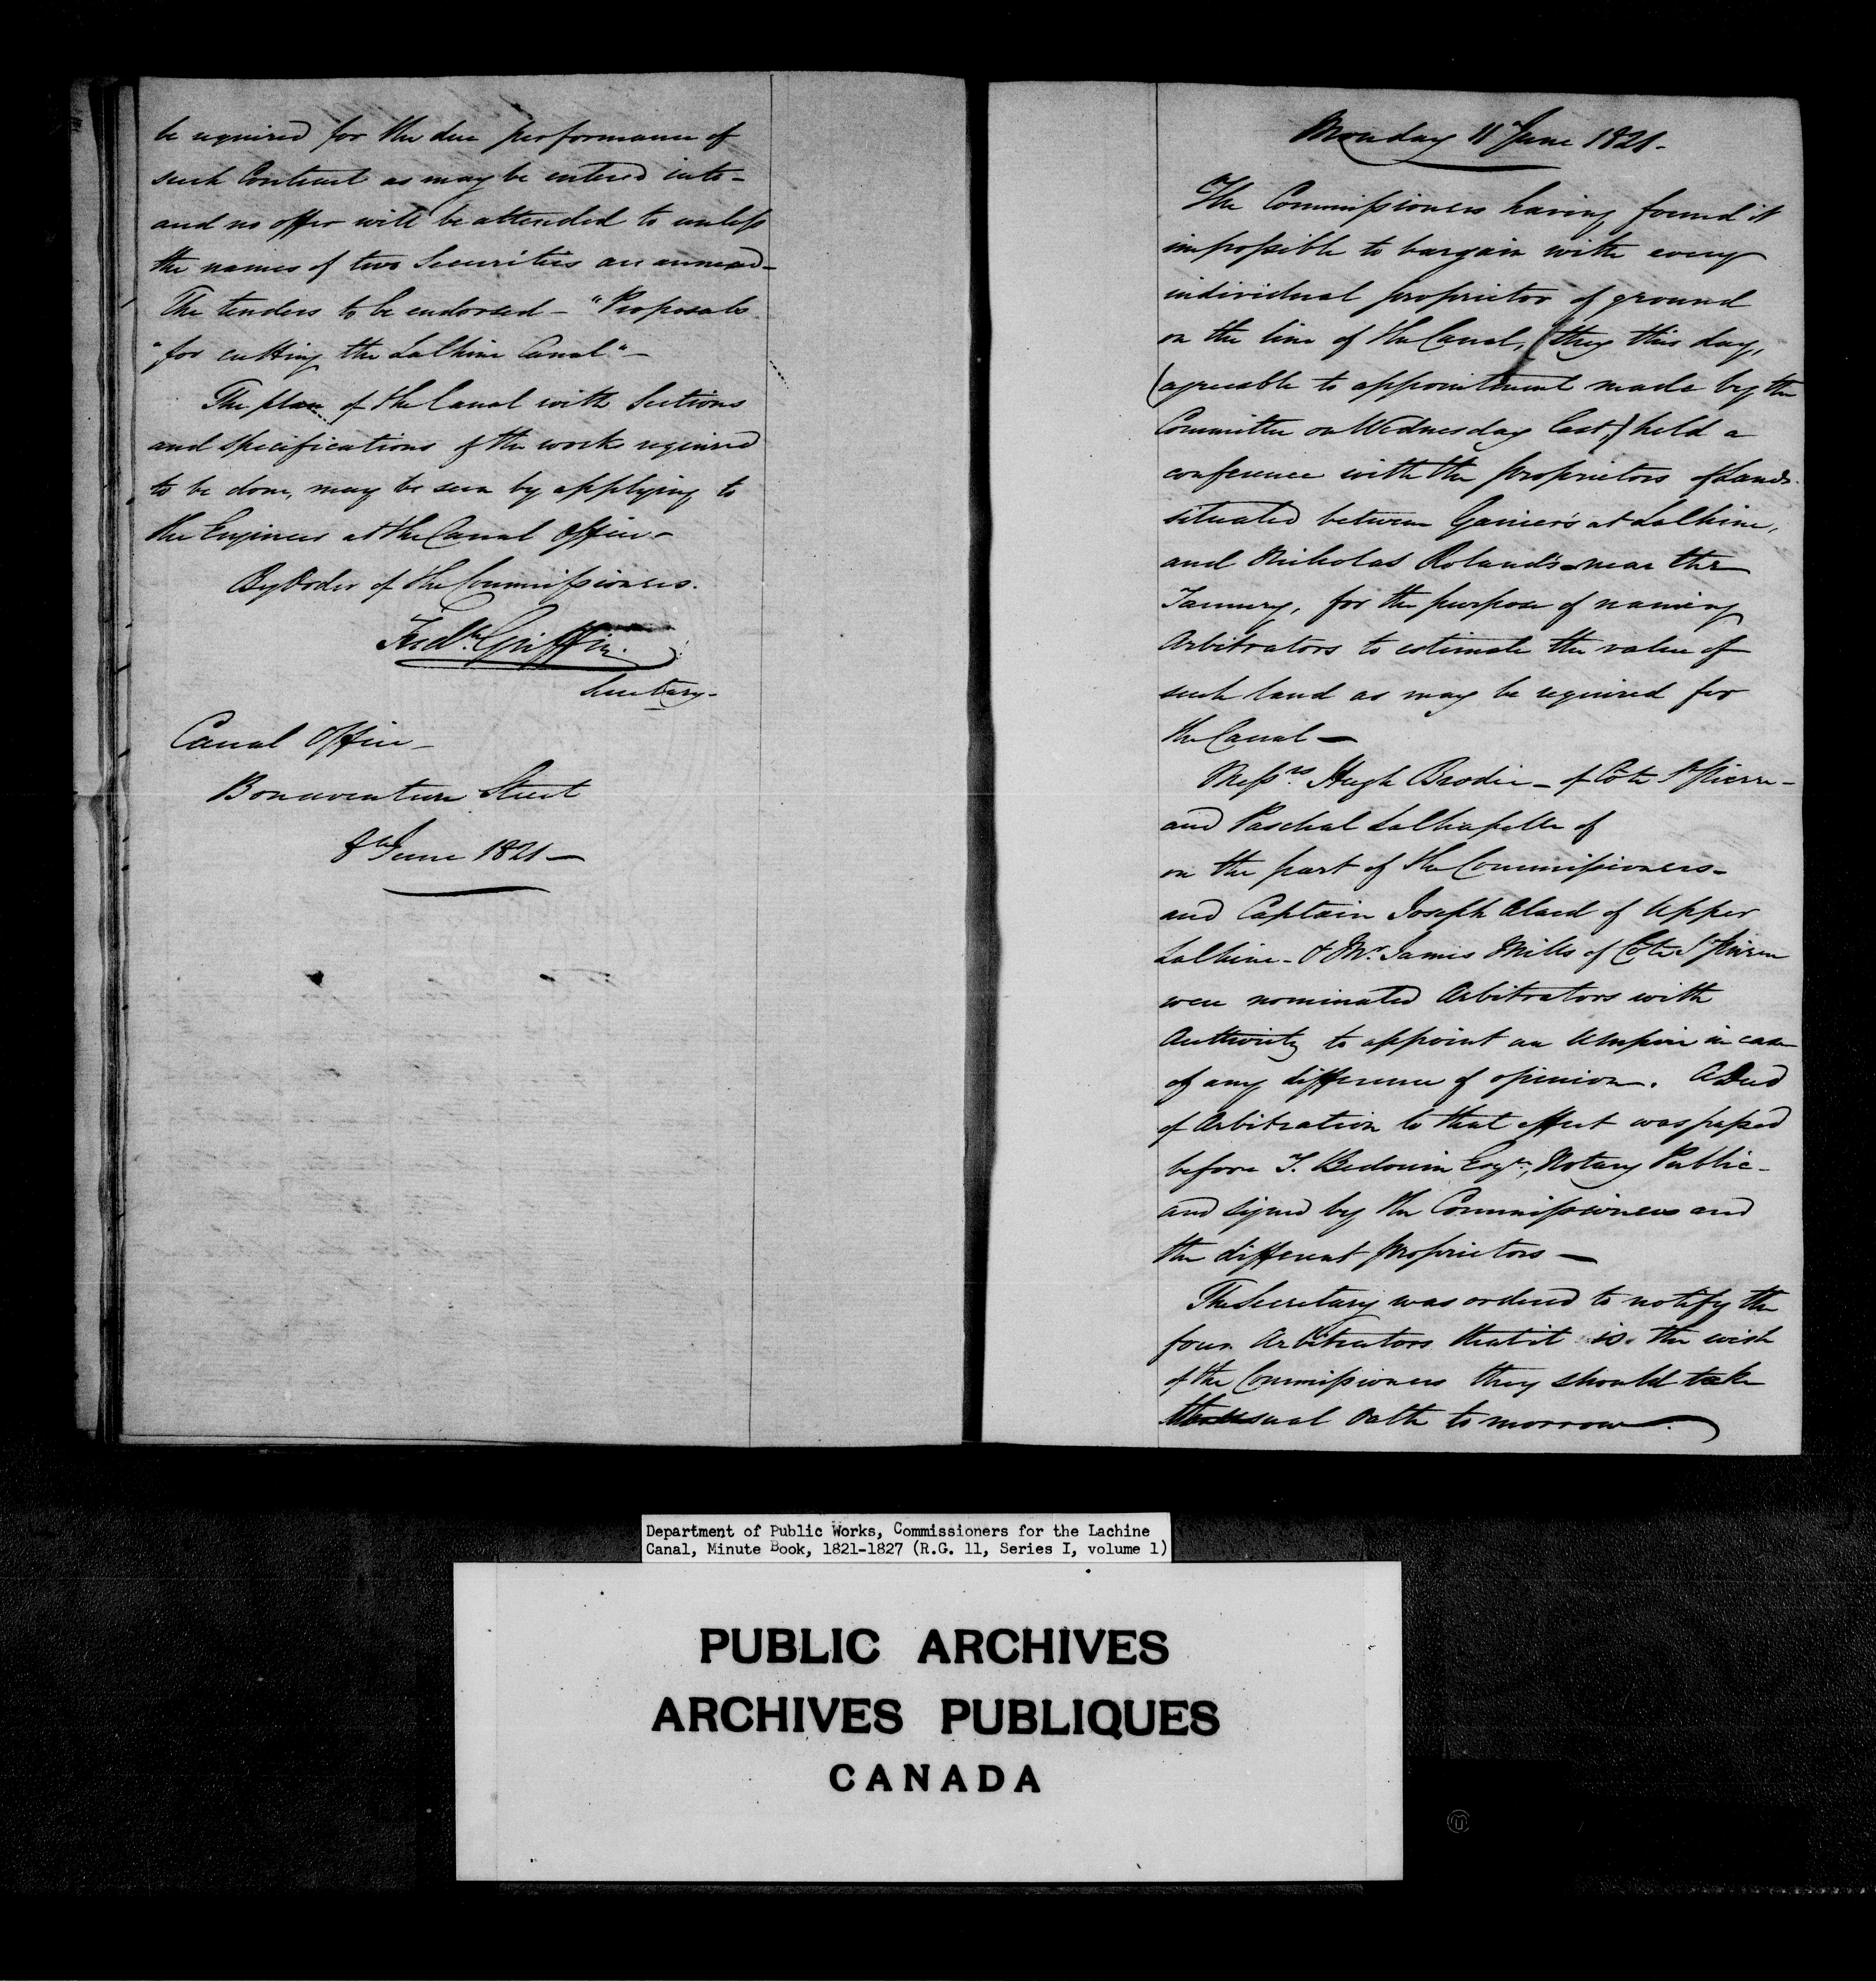 be required for the due performance of
such Contract as may be entered into -
and no offer will be attended to unless
the names of two Securities are annexed -
The tenders to be endorsed - "Proposals
"for cutting the LaChine Canal" -
The plan of the Canal with Sections
and specifications of the works required
to be done, may be seen by applying to
the Engineer at the Canal Office -
By Order of the Commissioners.
Fredk. Griffin.
Secretary -
Canal Office -
Bonaventure Street
8th June 1821 -
Monday 11 June 1821 -
The Commissioners having found it
impossible to bargain with every
individual proprietor of ground
on the line of the Canal, they this day,
(agreeable to appointment made by the
Committee on Wednesday last,) held a
conference with the proprietors of Lands
situated between Garnier's at LaChine,
and Nicholas Roland's near the
Tannery, for the purpose of naming
Arbitrators to estimate the value of
such land as may be required for
the Canal -
Messrs. Hugh Brodie - of Côte St Pierre -
and Paschal LaChapelle of
on the part of the Commissioners -
and Captain Joseph Alard of Upper
LaChine - & Mr. James Mills of Côte St Pierre
were nominated Arbitrators with
Authority to appoint an Umpire in case
of any difference of opinion. A Deed
of Arbitration to that effect was passed
before T. Bedouin Esqr., Notary Public -
and signed by the Commissioners and
the different proprietors -
The Secretary was ordered to notify the
four Arbitrators that it is the wish
of the Commissioners they should take
the usual Oath to morrow.
Department of Public Works, Commissioners for the Lachine
Canal, Minute Book, 1821-1827 (R.G. 11, Series I, volume 1)
PUBLIC ARCHIVES
ARCHIVES PUBLIQUES
CANADA